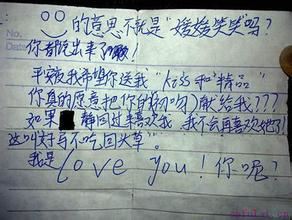 No.
Date
的意思不就是"笑笑吗?
你都说出来了!
平安夜我希望你送我"kiss和"精品"
你真的愿意把你的初吻献给我???
如果静回过来喜欢我,我不会再喜欢她了!
这叫好马不吃回头草。
我是 Love you! 你呢?